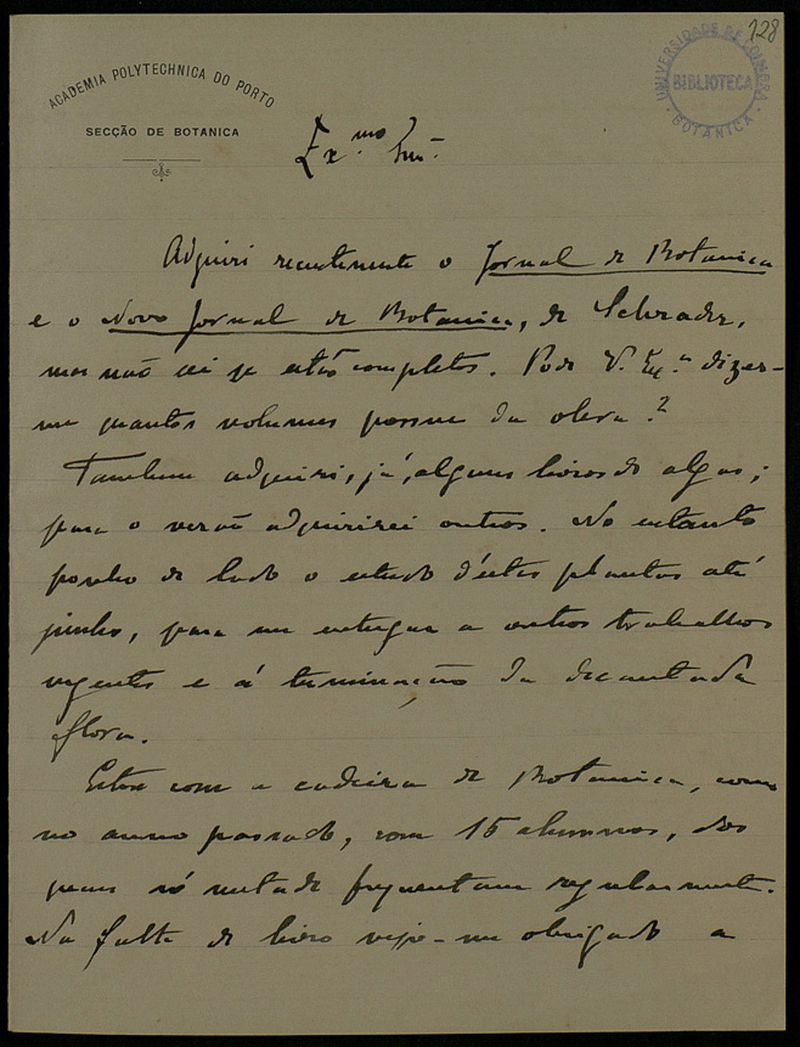 128
UNIVERSIDADE DE COIMBRA
BIBLIOTECA
BOTANICA
ACADEMIA POLYTECHNICA DO PORTO
SECÇÃO DE BOTANICA
Ex.mo Snr.
Adquiri recentemente o Jornal de Botanica
e o Novo Jornal de Botanica, de Schrader,
mas não sei se estão completos. Pode V. Ex.ª dizer-
me quantos volumes possue da obra?
Tambem adquiri, já, alguns livros de algas;
para o verão adquirirei outros. No entanto
ponho de lado o estudo d'estas plantas até
junho, para me entregar a outros trabalhos
urgentes e á terminação da decantada
flora.
Estou com a cadeira de Botanica, como
no anno passado, com 15 alumnos, dos
quaes só metade frequentam regularmente.
Na falta de livro vejo-me obrigado a